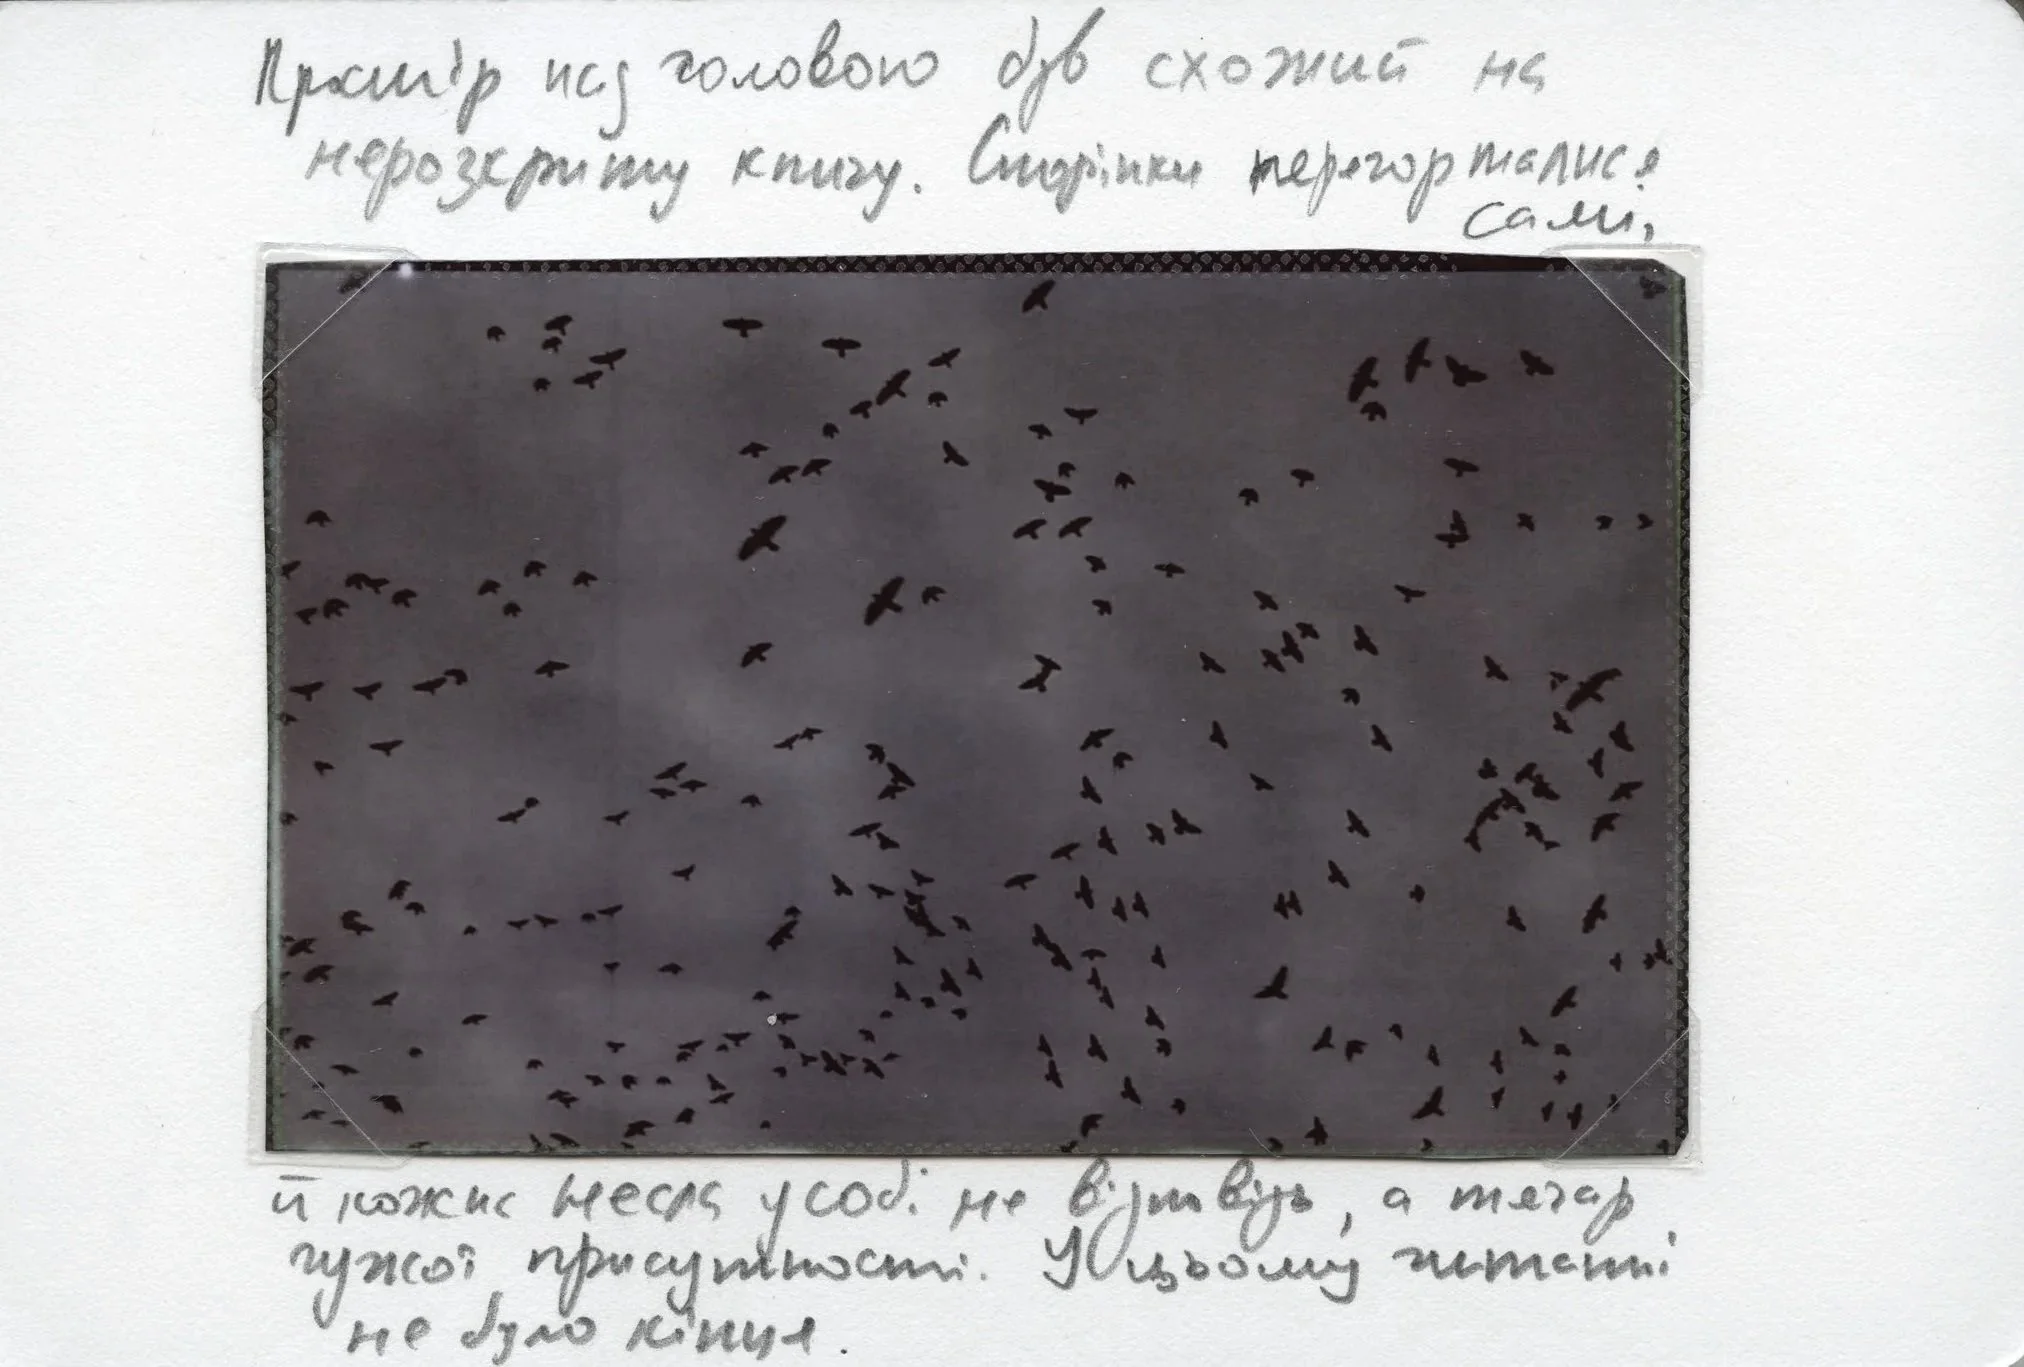 Простір над головою був схожий на
нерозкриту книгу. Сторінки перегорталися
сами,
й кожна несла у собі не відповідь, а тягар
чужої присутності. У цьому читанні
не було кінця.